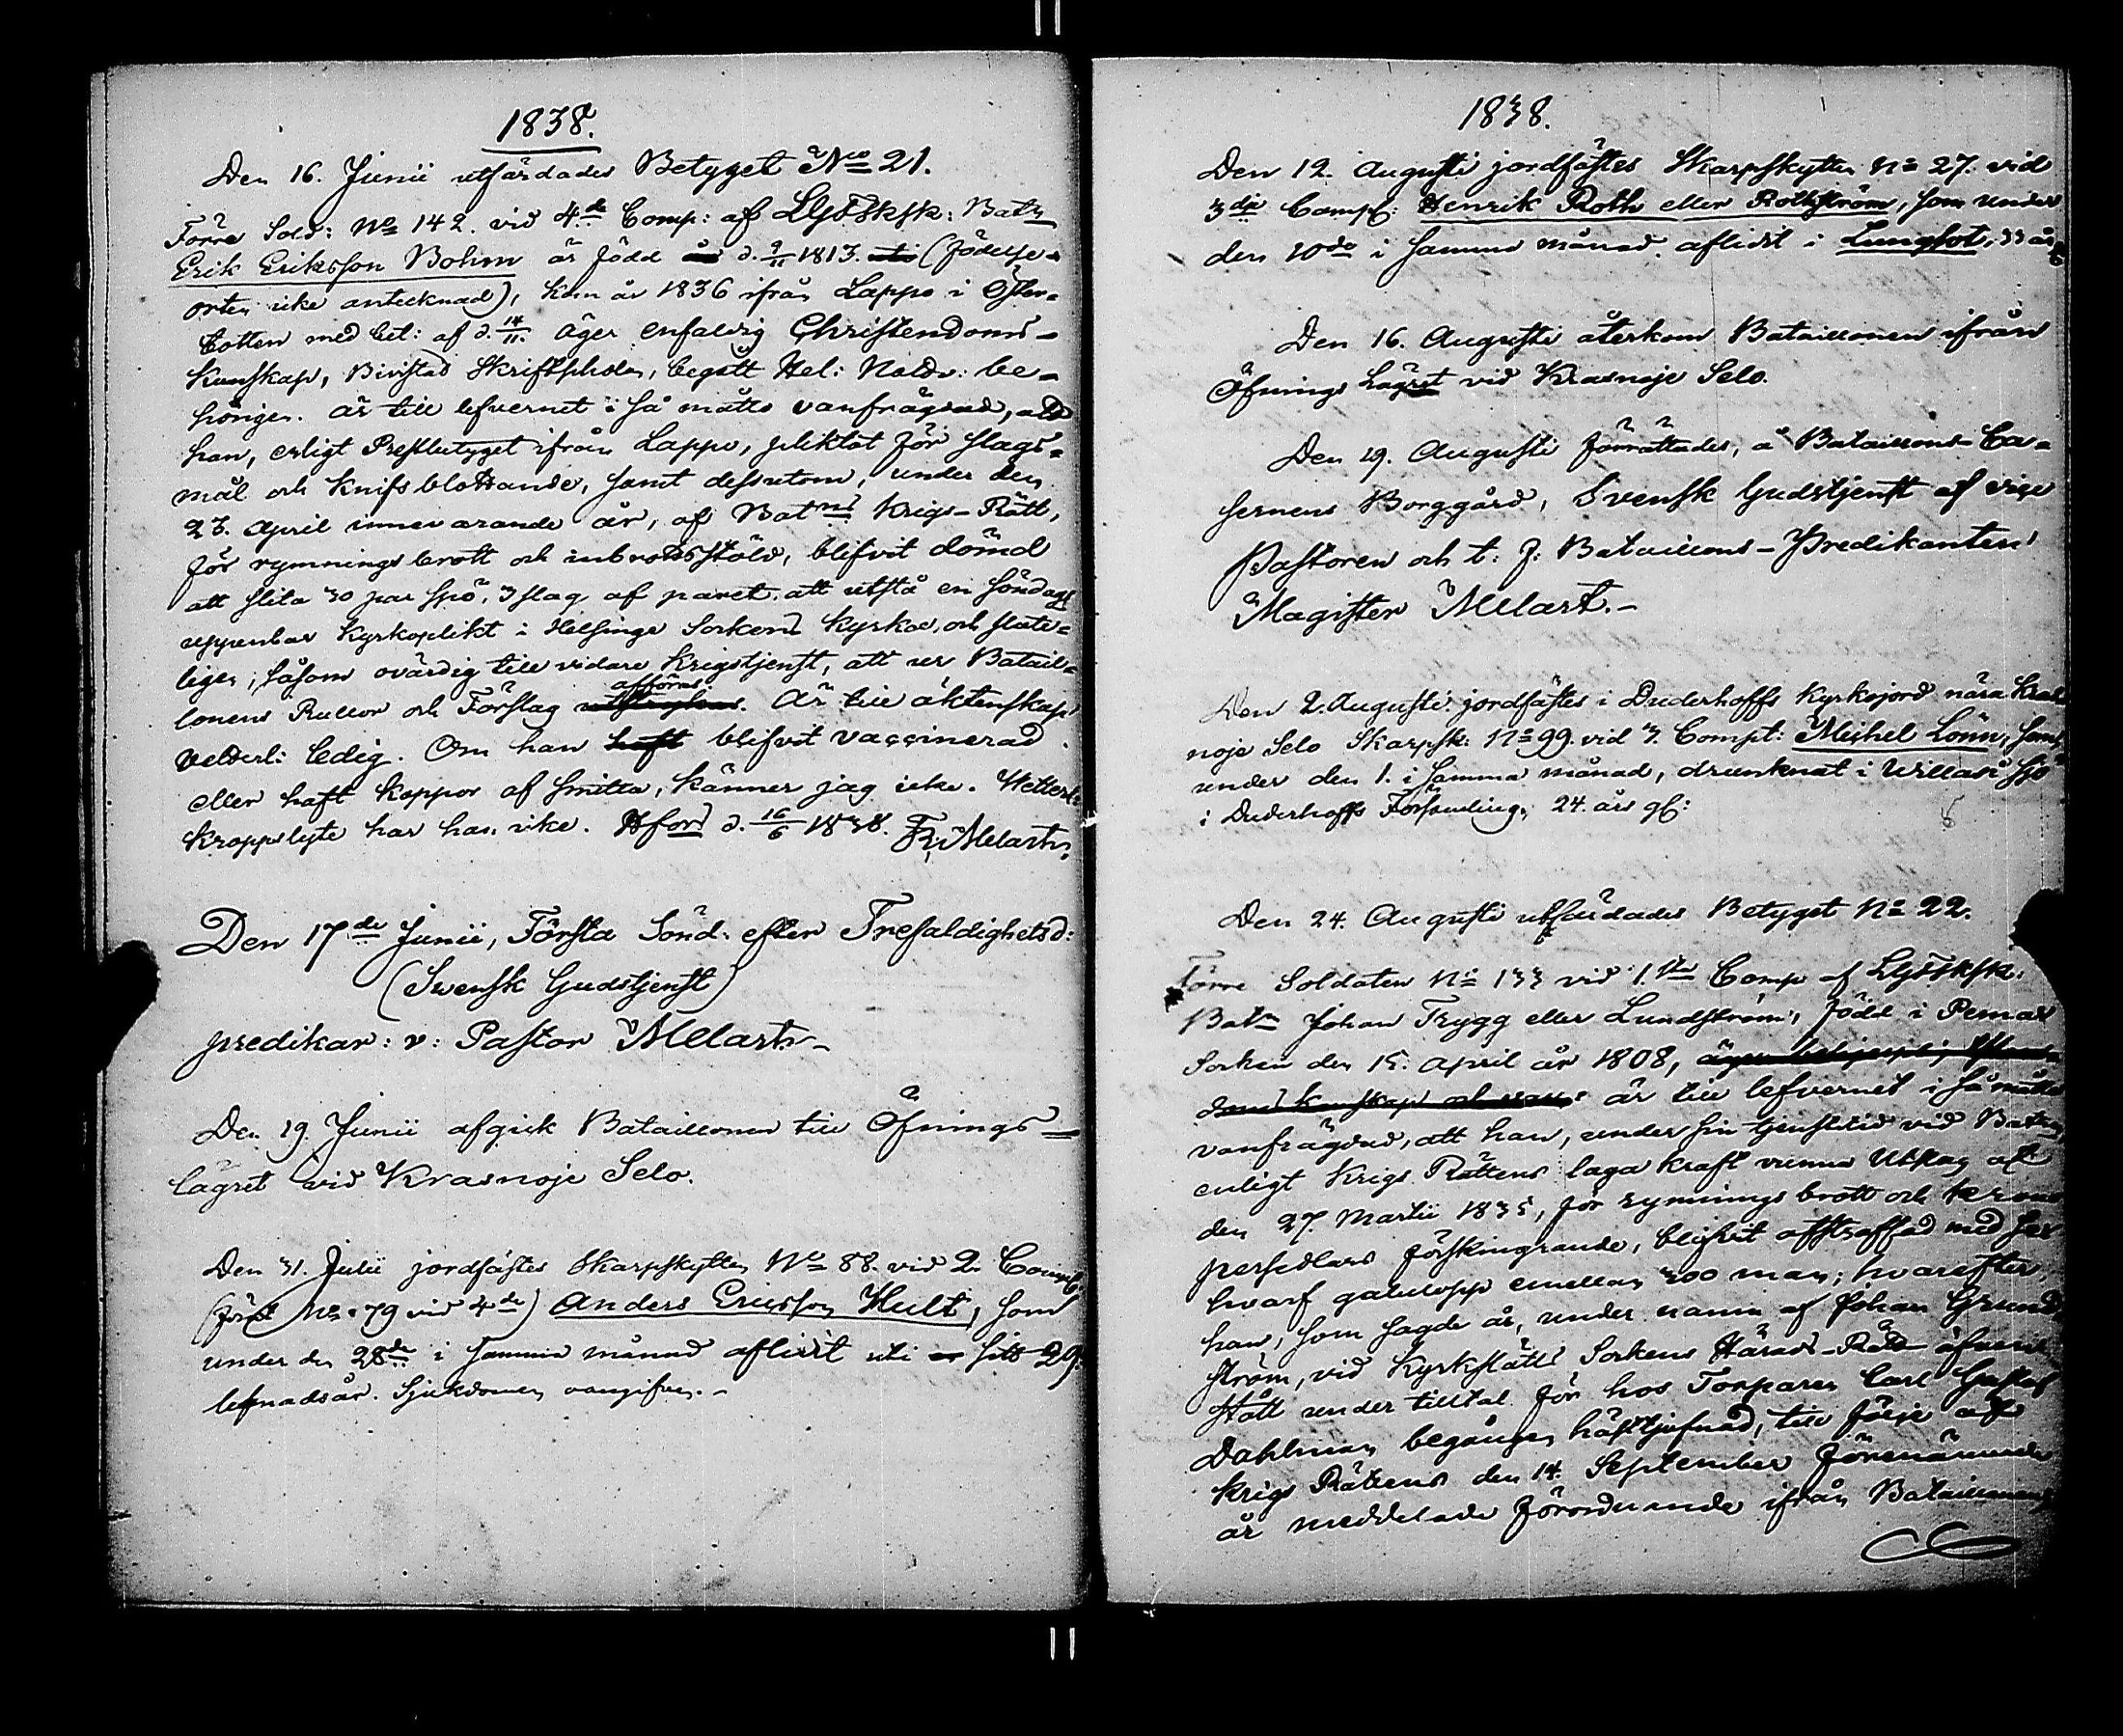 1838.
Den 16. Junii utfärdades Betyget No 21.
Förre Sold: No 142. vid 4de Comp: af LGFskSk: Batn
Erik Eriksson Bohm är född d. 9/11 1813. (födelse-
orten icke antecknad), kom år 1836 ifrån Lappo i Öster-
botten med bet: af d. 14/11. äger enfaldig Christendoms-
kunskap, bivistad Skriftskolan, begått Hel: Nattv: be-
hörigen. är till lefvernet i så måtto vanfrägdad, att
han, enligt Prestbetyget ifrån Lappo, pliktat för slags-
mål och knifsblottande, samt dessutom, under den
23. April innevarande år, af Batns Krigs-Rätt,
för rymningsbrott och inbrottsstöld, blifvit dömd
att slita 30 par spö, 3 slag af paret, att utstå en söndags
uppenbar Kyrkoplikt i Helsinge Sockens Kyrka, och slute-
ligen, såsom ovärdig till vidare Krigstjenst, att ur Batail-
lonens Rullor och Förslag afföras. Är till äktenskap
vetterl: ledig. Om han haft blifvit vaccinerad
eller haft koppor af smitta, känner jag icke. Vetterl:
kroppslyte har han icke. Hfors d. 16/6 1838. Fr. Melart.
Den 17de Junii, Första Sönd: efter Trefaldighetsd:
(Svensk Gudstjenst)
predikar: v: Pastor Melart.-
Den 19 Junii afgick Bataillonen till Öfnings-
lägret vid Krasnoje Selo.
Den 31. Julii jordfästes Skarpskytten No 88. vid 2. Comp:
(förut No 79 vid 4de) Anders Ericsson Hult, som
under den 28de i samma månad aflidit uti sitt 29.
lefnadsår. Sjukdomen oangifven.-
1838.
Den 12. Augusti jordfästes Skarpskytten No 27. vid
3dje Comp: Henrik Roth eller Rothström, som under
den 10de i samma månad aflidit i Lungsot, 33 år
Den 16. Augusti återkom Bataillonen ifrån
Öfnings Lägret vid Krasnoje Selo.
Den 19. Augusti förrättades, å Bataillons-Ca-
sernens Borggård, Svensk Gudstjenst af vice
Pastoren och t: f: Bataillons-Predikanten
Magister Melart.-
Den 2. Augusti jordfästes i Duderhoffs Kyrkojord nära Kras-
noje Selo Skarpsk: No 99. vid 3. Comp: Michel Lönn, som,
under den 1. i samma månad, drunknat i Willasi sjö
i Duderhoffs Församling, 24. års gl:
Den 24. Augusti utfärdades Betyget No 22.
Förre Soldaten No 133 vid 1.sta Comp af LGFskSk:
Batn Johan Trygg eller Lundström, född i Pemar
Socken den 15. April år 1808, är till lefvernet i så måtto
vanfrägdad, att han, under sin tjenstetid vid Batn,
enligt Krigs Rättens laga kraft vunna Utslag af
den 27. Martii 1835, för rymningsbrott och krono
persedlars förskingrande, blifvit afstraffad med sex
hvarf gatulopp emellan 300 man; hvarefter,
han, som sagde år, under namn af Johan Grund-
ström, vid Kyrkslätts Sockens Härads-Rätt äfven
stått under tilltal för hos Torparen Carl Gustaf
Dahlman begången häst tjufnad, till följe af
Krigs Rättens den 14. September förenämnde
år meddelade förordnande ifrån Bataillonens